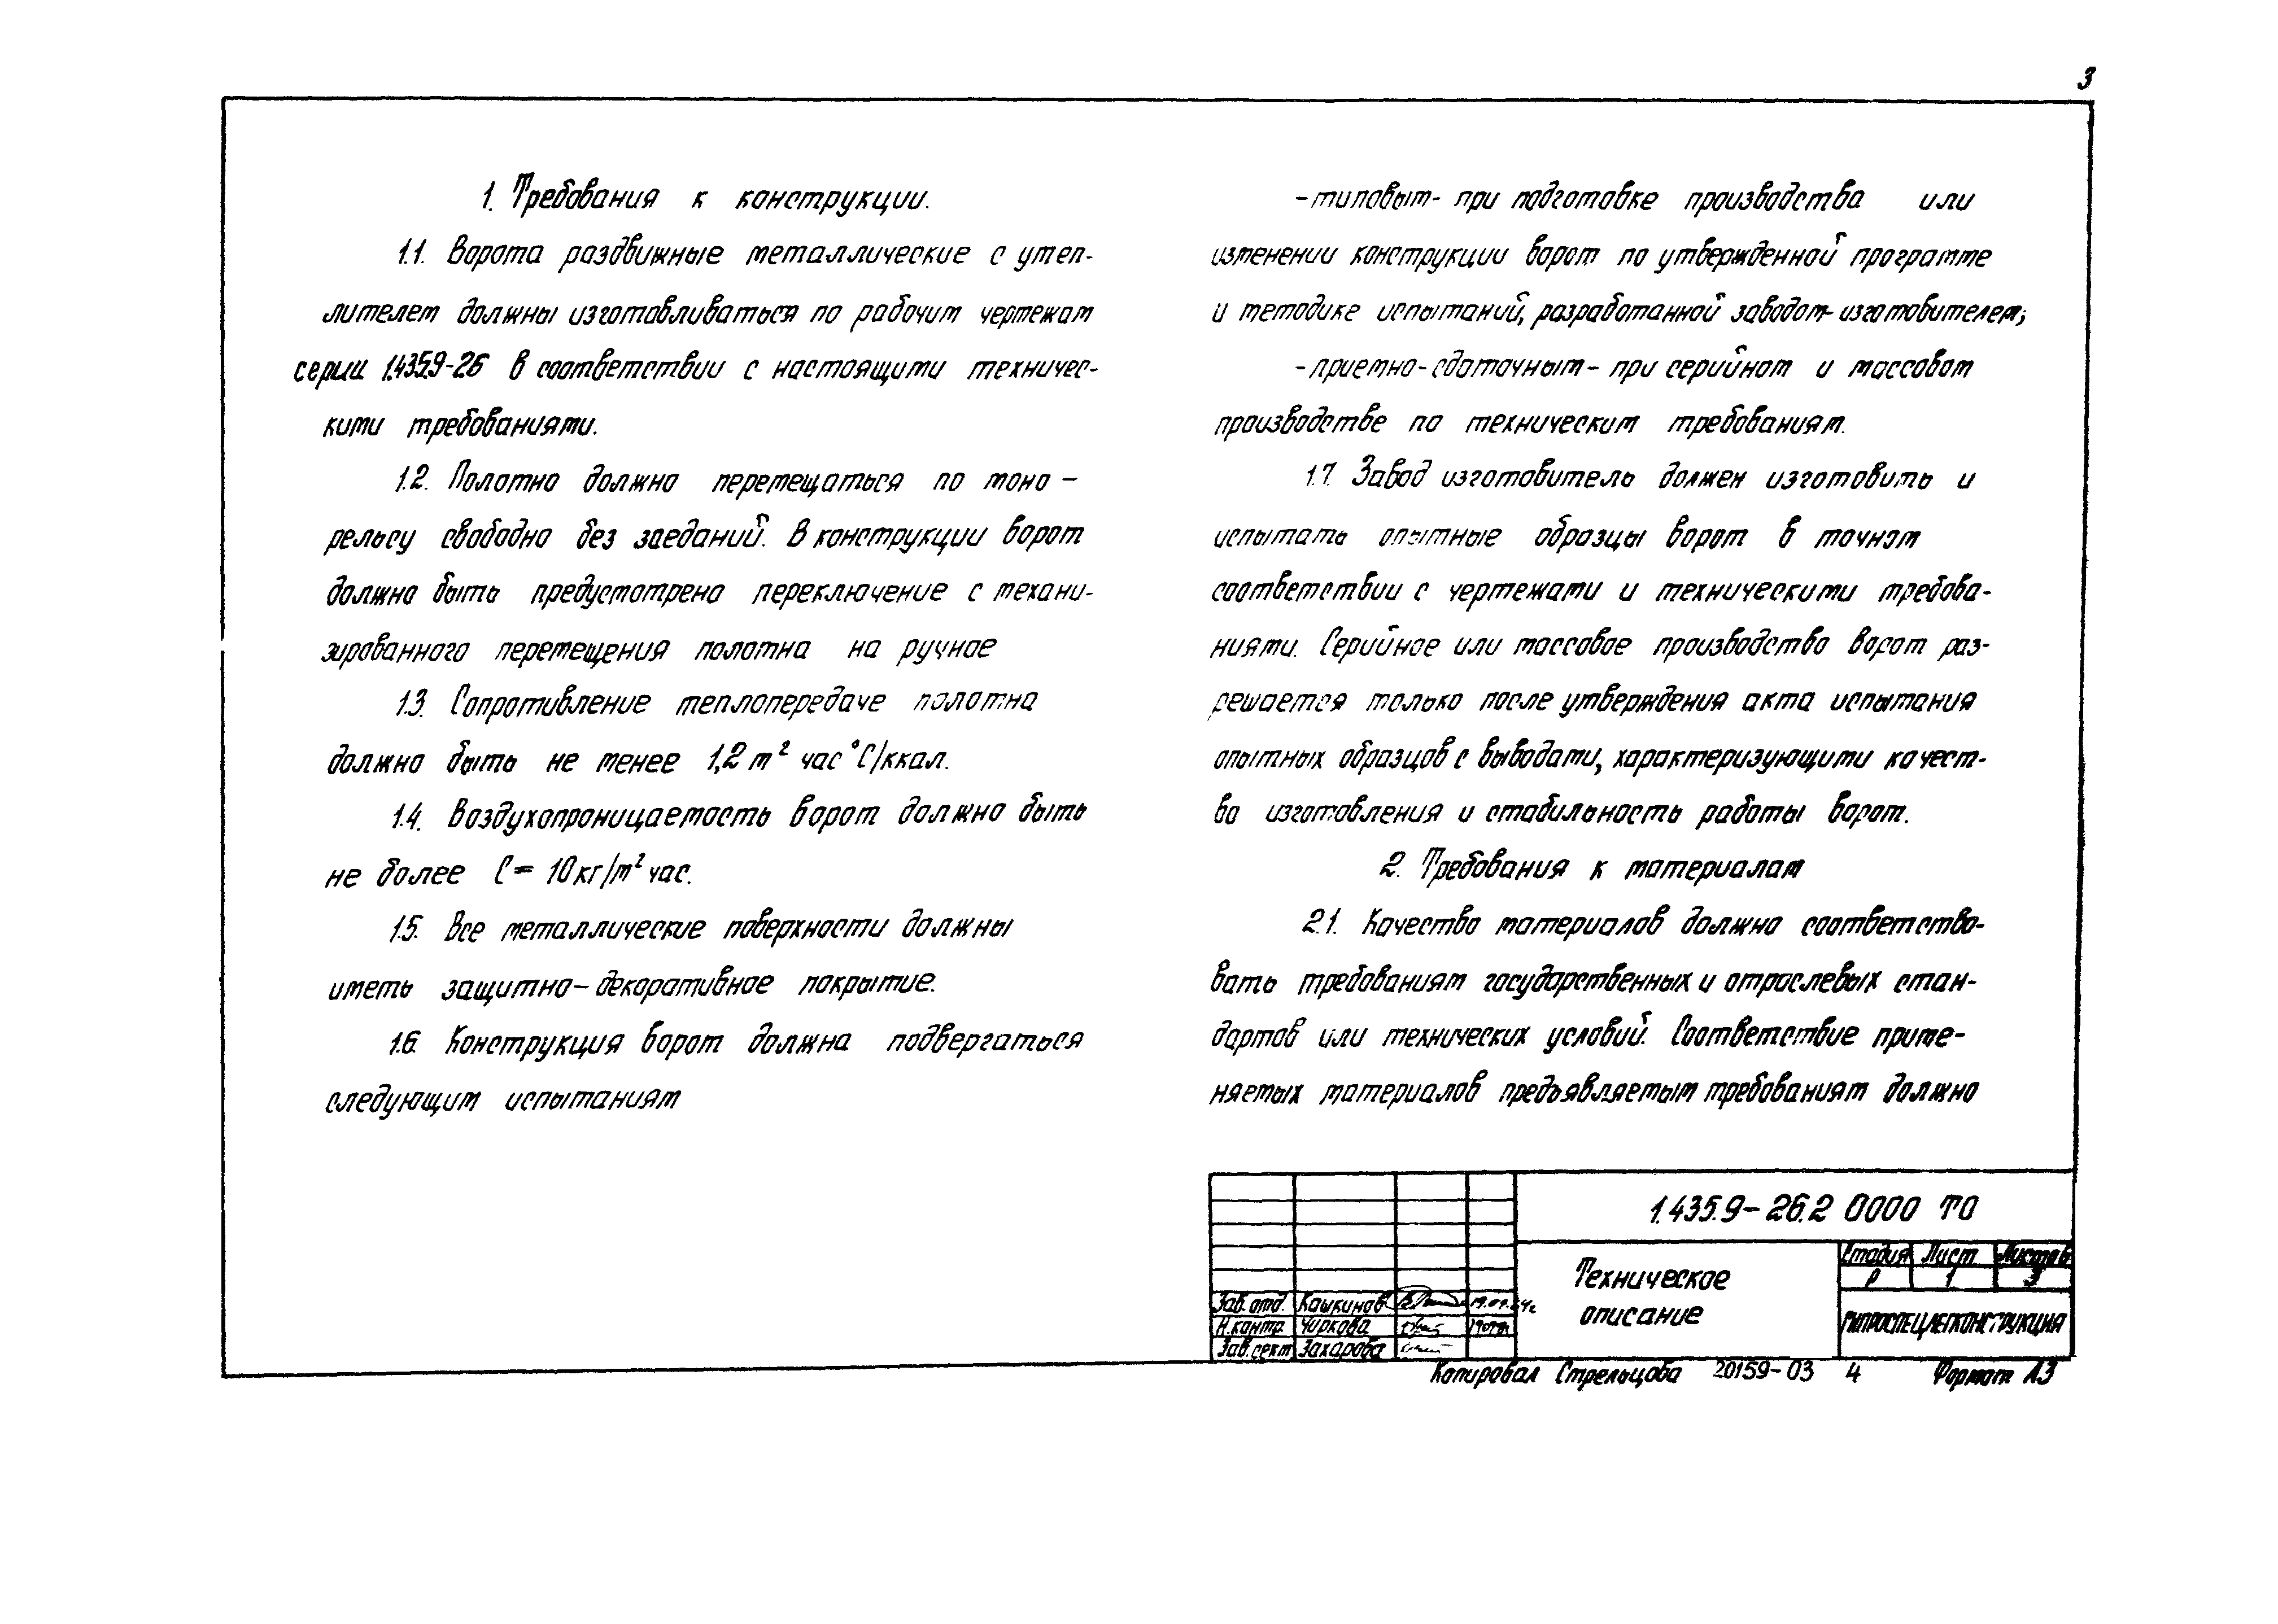 3
1. Требования к конструкции.
1.1. Ворота раздвижные металлические с утеп-
лителем должны изготавливаться по рабочим чертежам
серии 1.435.9-26 в соответствии с настоящими техничес-
кими требованиями.
1.2. Полотно должно перемещаться по моно-
рельсу свободно без заеданий. В конструкции ворот
должно быть предусмотрено переключение с механи-
зированного перемещения полотна на ручное
1.3. Сопротивление теплопередаче полотна
должно быть не менее 1,2 м² час °С/ккал.
1.4. Воздухопроницаемость ворот должно быть
не более С = 10 кг/м² час.
1.5. Все металлические поверхности должны
иметь защитно-декоративное покрытие.
1.6. Конструкция ворот должна подвергаться
следующим испытаниям
- типовым - при подготовке производства или
изменении конструкции ворот по утвержденной программе
и методике испытаний, разработанной заводом-изготовителем;
- приемно-сдаточным - при серийном и массовом
производстве по техническим требованиям.
1.7. Завод изготовитель должен изготовить и
испытать опытные образцы ворот в точном
соответствии с чертежами и техническими требова-
ниями. Серийное или массовое производство ворот раз-
решается только после утверждения акта испытания
опытных образцов с выводами, характеризующими качест-
во изготовления и стабильность работы ворот.
2. Требования к материалам
2.1. Качество материалов должно соответство-
вать требованиям государственных и отраслевых стан-
дартов или технических условий. Соответствие приме-
няемых материалов предъявляемым требованиям должно
1.435.9-26.2 0000 ТО
Техническое
описание
Стадия Лист Листов
Р 1 3
ГИПРОСПЕЦЛЕГКОНСТРУКЦИЯ
Зав. отд. Кашкинов
Н. контр. Чиркова
Зав. сект. Захарова
Копировал Стрельцова 20159-03 4 Формат А3